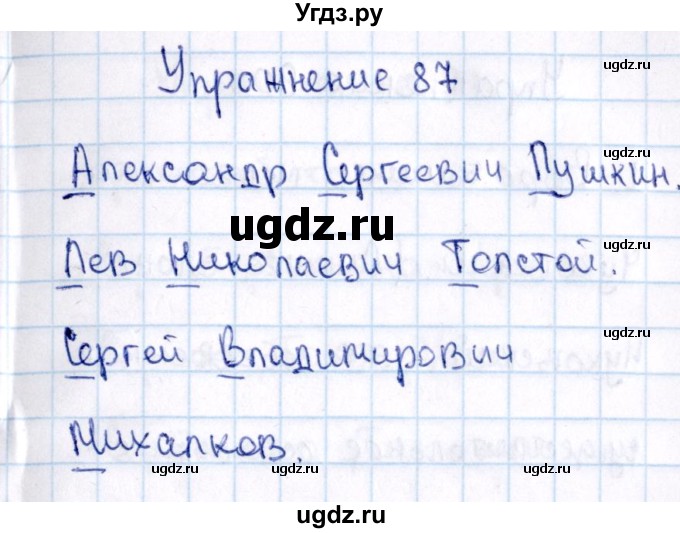 Угдз.ру
ugdz.ru
Упражнение 87
ugdz.ru
Александр Сергеевич Пушкин.
ugdz.ru
ugdz.ru
Лев Николаевич Толстой.
ugdz.ru
Сергей Владимирович
ugdz.ru
Михалков.
ugdz.ru
ugdz.ru
ugdz.ru